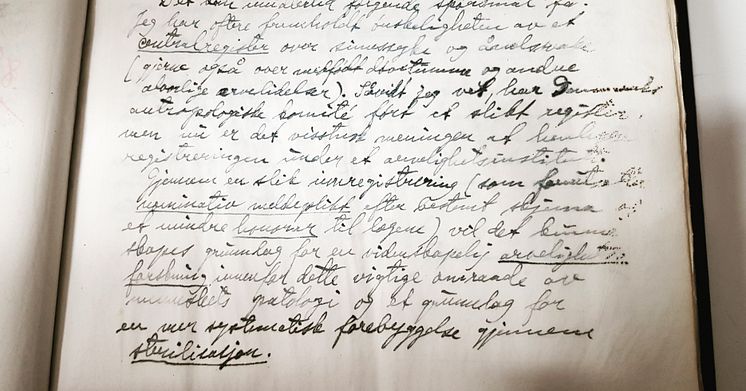 Det kan imidlertid følgende spørsmål få.
Jeg har oftere fremholdt ønskeligheten av et
centralregister over sinnssyke og åndssvake
(gjerne også over medfødt døvstumme og andre
alvorlige arvelidelser). Såvidt jeg vet, har Danmarks
antropologiske komité ført et slikt register,
men nu er det visstnok meningen at henlegge
registreringen under et arvelighetsinstitutt.
Gjennem en slik innregistrering (som
nominativ meldeplikt efter bestemt skjema og
et mindre honorar til lægene) vil det kunne
skapes grunnlag for en videnskapelig arvelighets-
forskning innenfor dette vigtige område av
menneskets patologi og et grunnlag for
en mer systematisk forebyggelse gjennem
sterilisasjon.